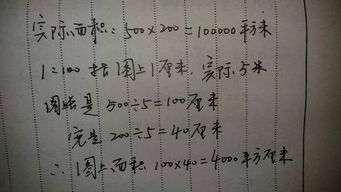 实际面积：500×200=100000平方米
1:100 指图上1厘米，实际5米
图长是 500÷5=100厘米
宽是 200÷5=40厘米
∴图上面积 100×40=4000平方厘米